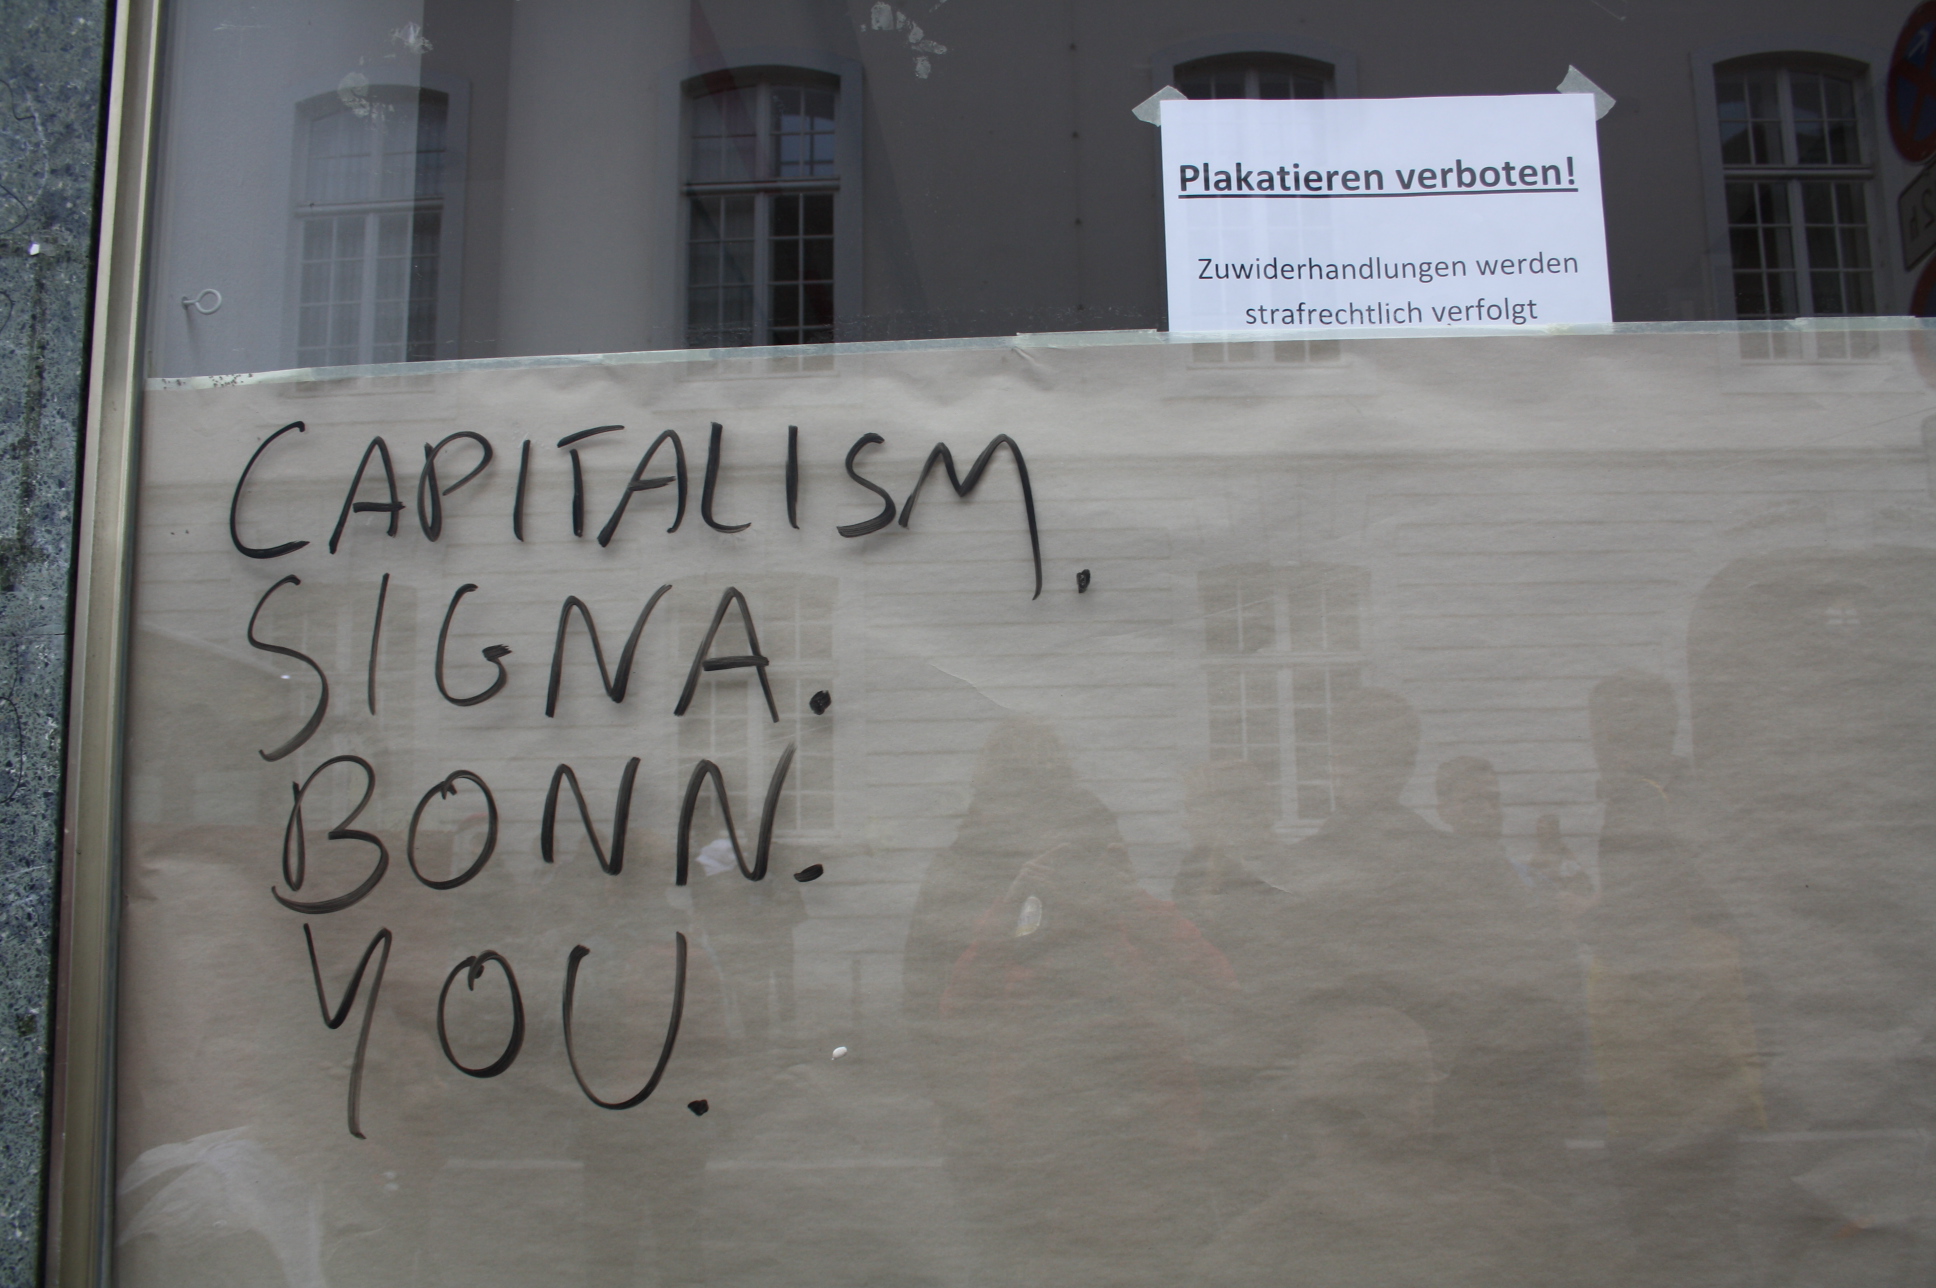 Plakatieren verboten!
Zuwiderhandlungen werden
strafrechtlich verfolgt
CAPITALISM.
SIGNA.
BONN.
YOU.